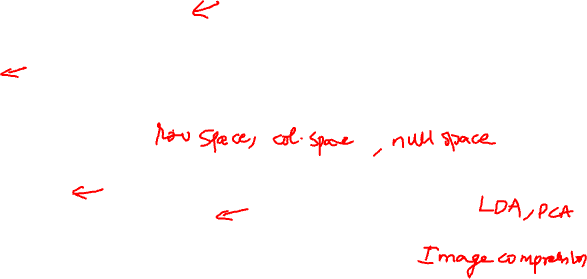 Row space, col. space, null space
LDA, PCA
Image compression